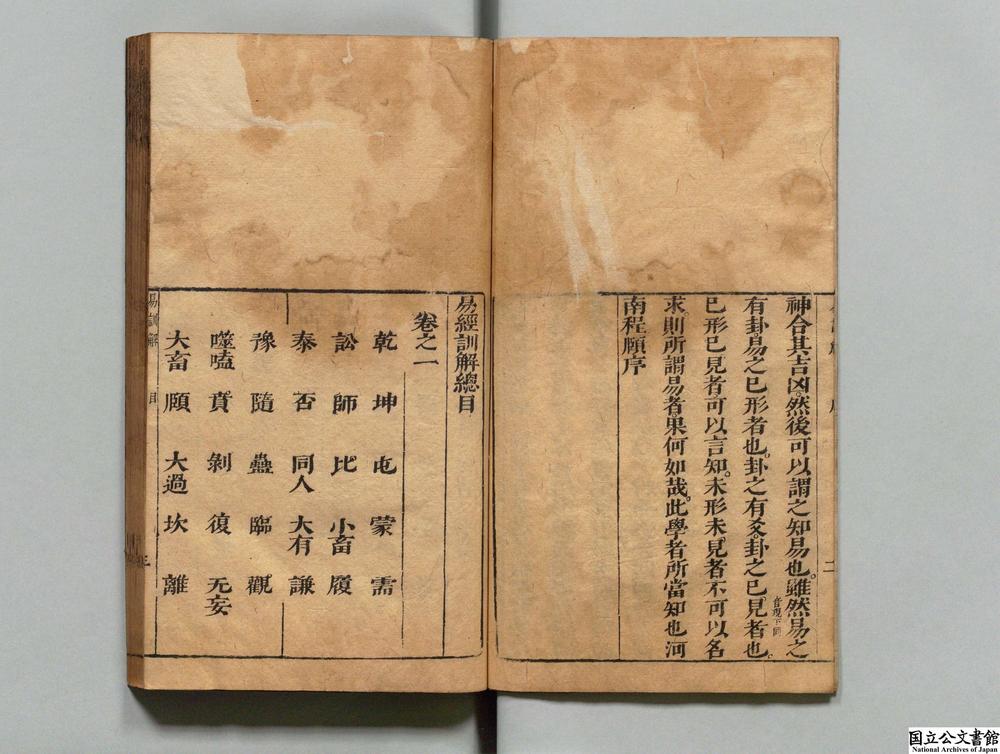 神合其吉凶然後可以謂之知易也。雖然易之
有卦易之已形者也。卦之有爻卦之已見者也。
音現下同
已形已見者可以言知。未形未見者不可以名
求。則所謂易者。果何如哉。此學者所當知也河
南程頤序
二
易經訓解總目
卷之一
乾 坤 屯 蒙 需
訟 師 比 小畜 履
泰 否 同人 大有 謙
豫 隨 蠱 臨 觀
噬嗑 賁 剝 復 无妄
大畜 頤 大過 坎 離
易訓解 目
国立公文書館
National Archives of Japan